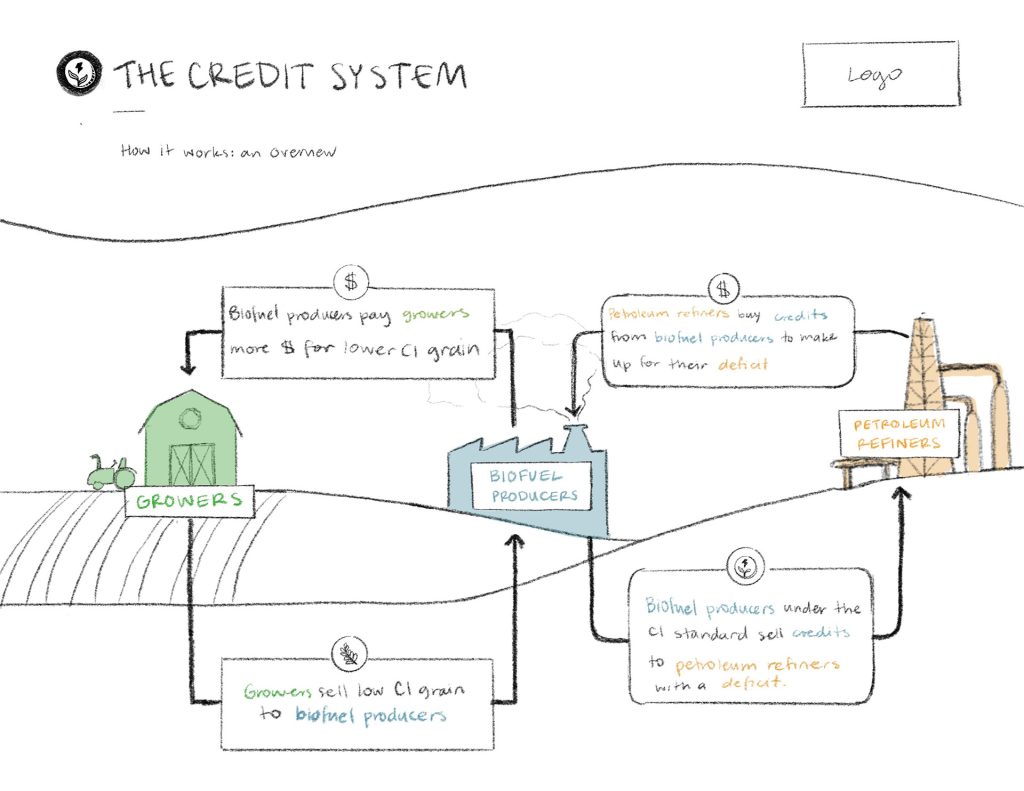 THE CREDIT SYSTEM
Logo
How it works: an overview
$
Biofuel producers pay growers
more $ for lower CI grain
$
Petroleum refiners buy credits
from biofuel producers to make
up for their deficit
GROWERS
BIOFUEL
PRODUCERS
PETROLEUM
REFINERS
Growers sell low CI grain
to biofuel producers
Biofuel producers under the
CI standard sell credits
to petroleum refiners
with a deficit.